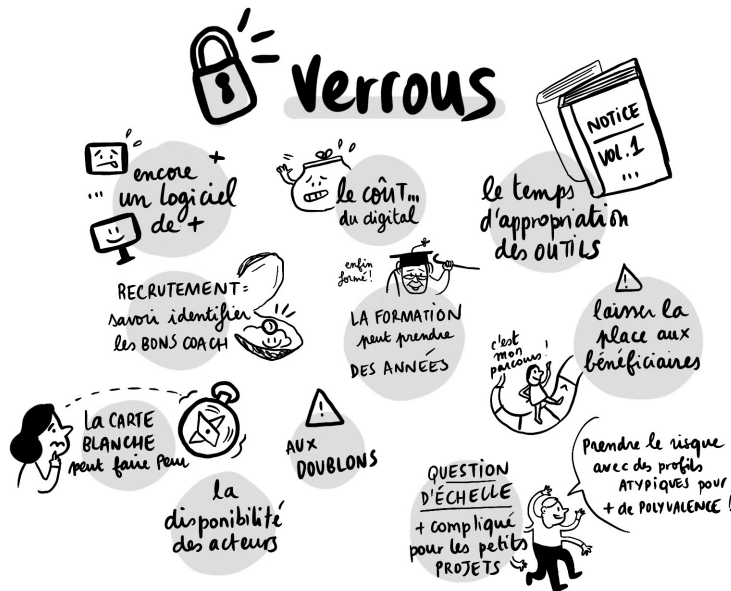 Verrous
NOTICE
VOL.1
...
encore
un logiciel
de +
le coût...
du digital
le temps
d'appropriation
des OUTILS
RECRUTEMENT :
savoir identifier
les BONS COACH
enfin
formé !
LA FORMATION
peut prendre
DES ANNÉES
laisser la
place aux
bénéficiaires
c'est
mon
parcours !
LA CARTE
BLANCHE
peut faire Peur
AUX
DOUBLONS
la
disponibilité
des acteurs
QUESTION
D'ÉCHELLE
+ compliqué
pour les petits
PROJETS
Prendre le risque
avec des profils
ATYPIQUES pour
+ de POLYVALENCE !